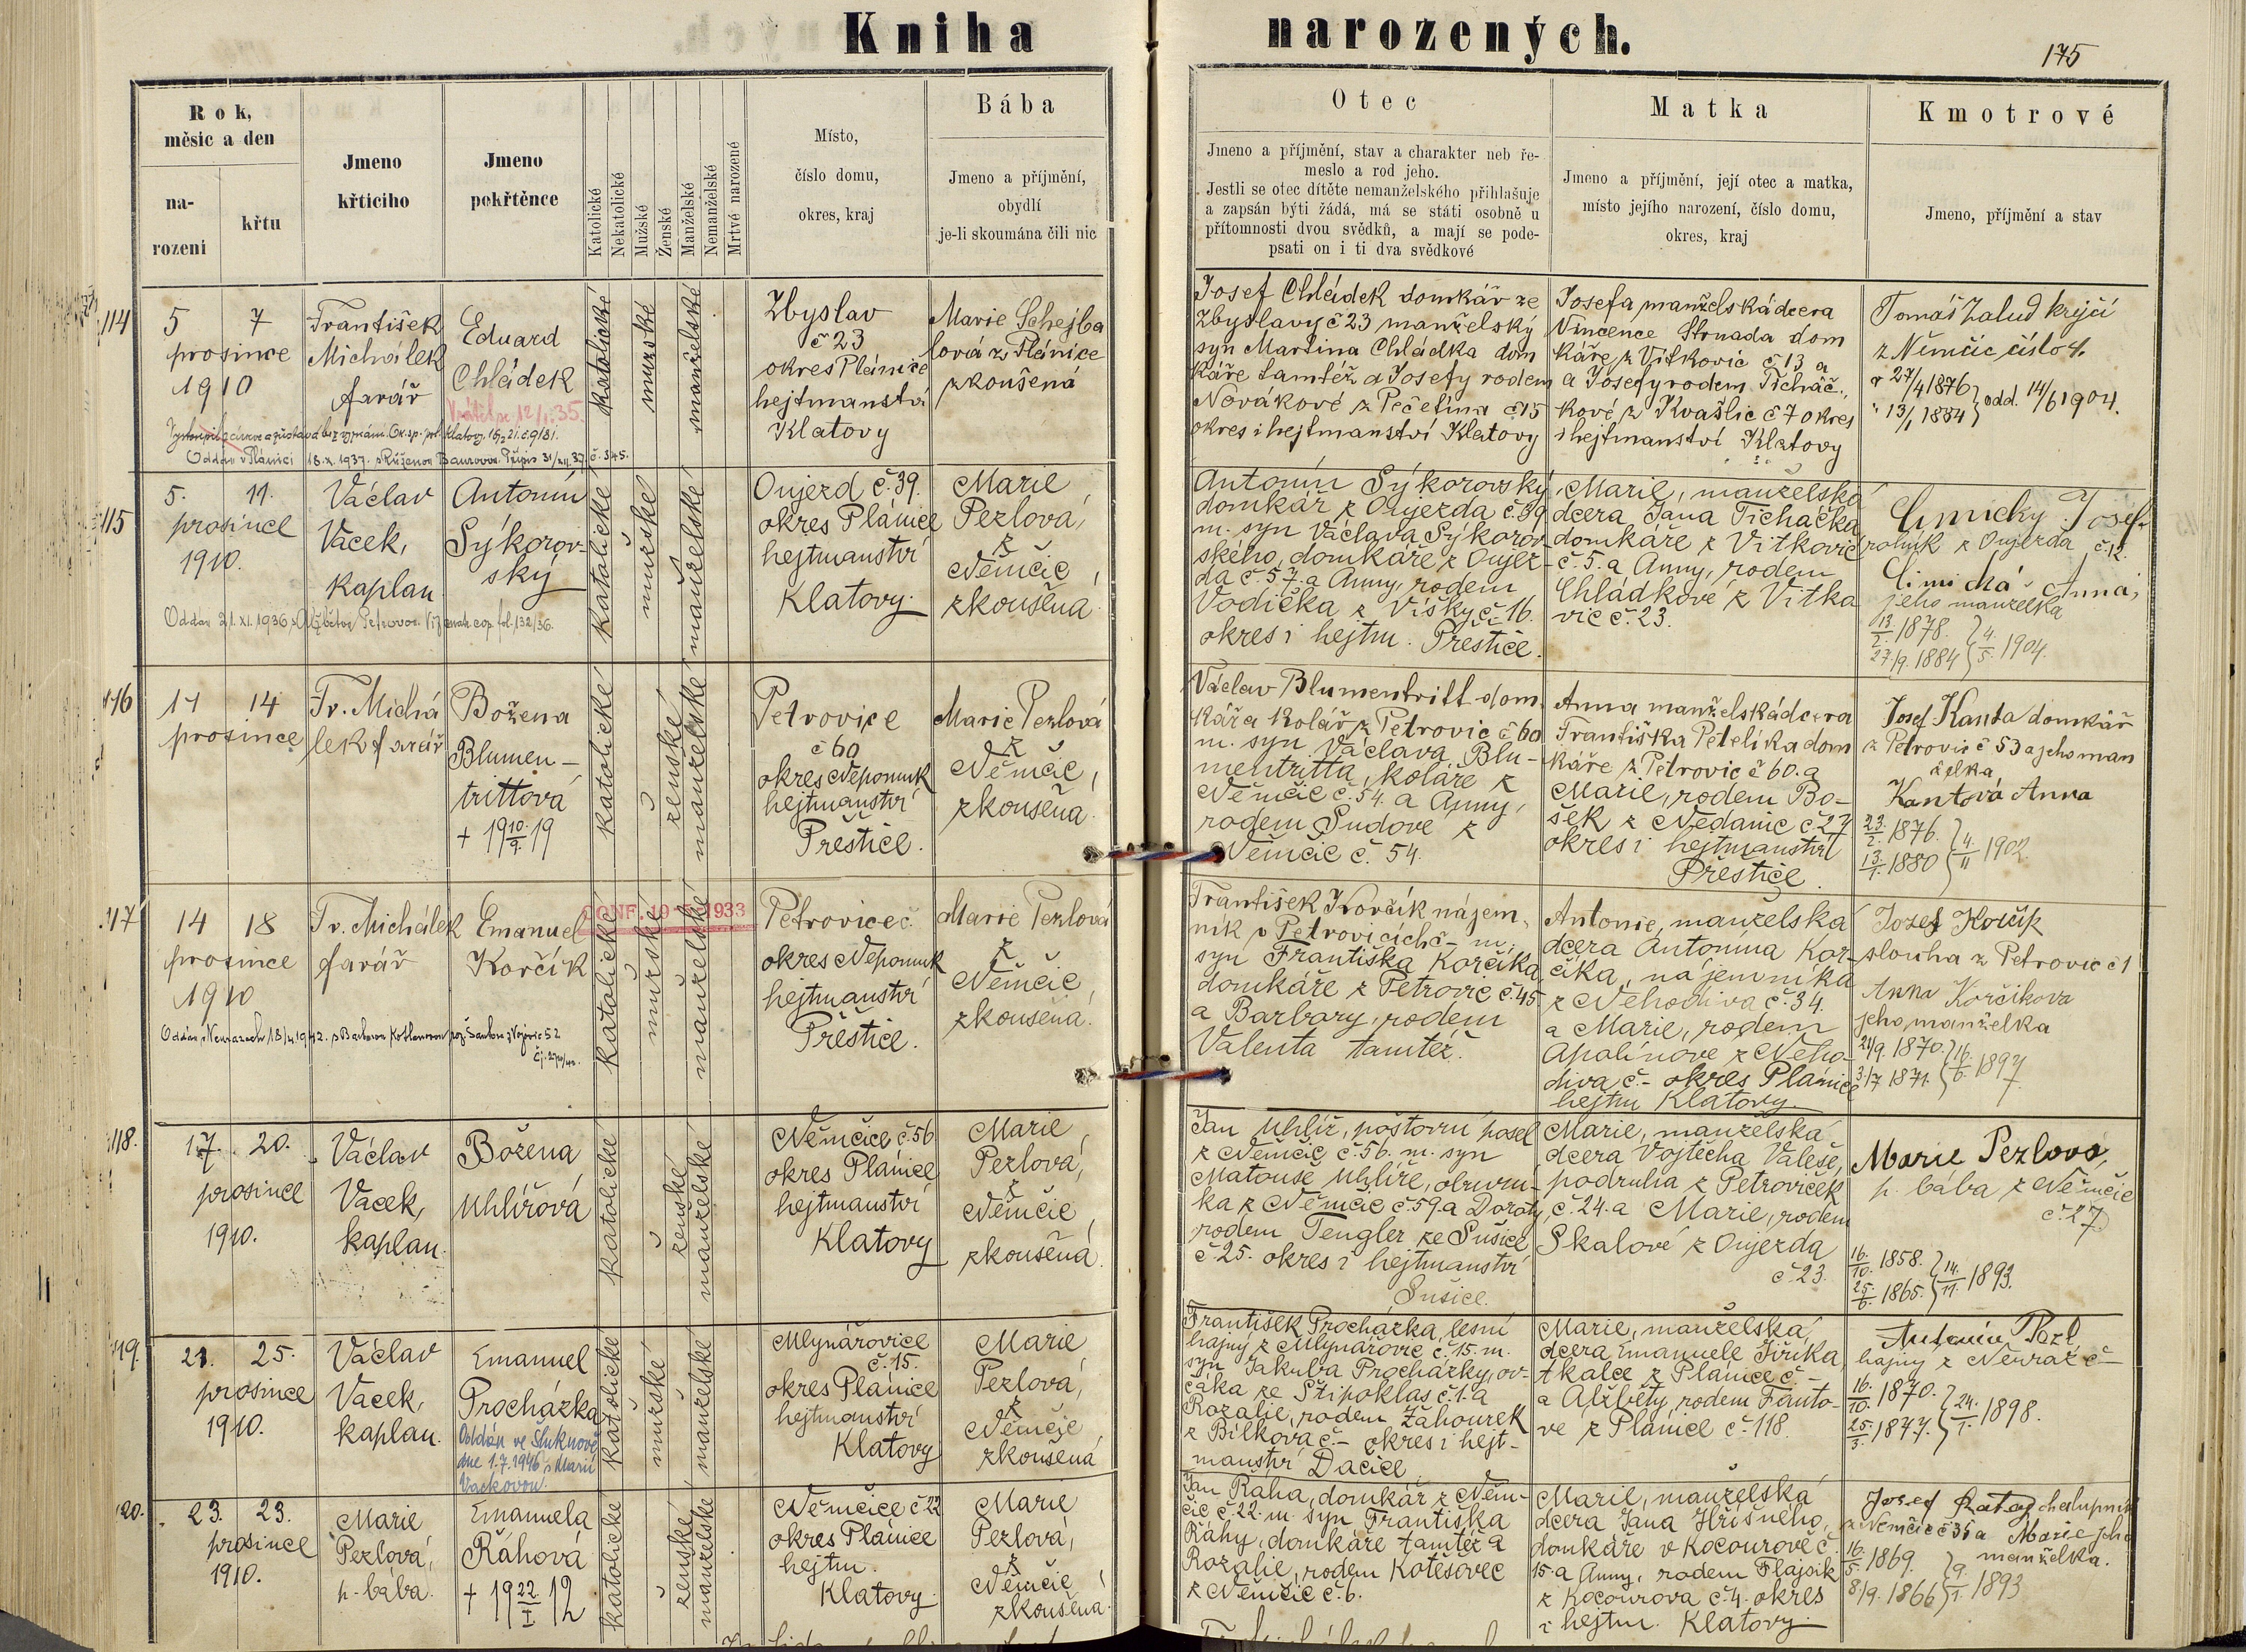 Kniha narozených.
175
Rok,
měsíc a den
na-
rození
křtu
Jmeno
křticiho
Jmeno
pokřtěnce
Katolické
Nekatolické
Mužské
Ženské
Manželské
Nemanželské
Mrtvě narozené
Místo,
číslo domu,
okres, kraj
Bába
Jmeno a příjmění,
obydlí
je-li skoumána čili nic
Otec
Jmeno a příjmění, stav a charakter neb ře-
meslo a rod jeho.
Jestli se otec dítěte nemanželského přihlašuje
a zapsán býti žádá, má se státi osobně u
přítomnosti dvou svědků, a mají se pode-
psati on i ti dva svědkové
Matka
Jmeno a příjmění, její otec a matka,
místo jejího narození, číslo domu,
okres, kraj
Kmotrové
Jmeno, příjmění a stav
114
5 7
prosince
1910
František
Michálek
farář
Eduard
Chládek
Vrátil se 12/1.35.
Oddán v Plánici 18.X.1937. s Růženou Baurovou. Přípis 31/XII.37. č. 345.
katolické
mužské
manželské
Zbyslav
č 23
okres Plánice
hejtmanství
Klatovy
Marie Schejba
lová z Plánice
zkoušená
Josef Chládek domkář ze
Zbyslavy č 23 manželský
syn Martina Chládka dom
káře tamtéž a Josefy rodem
Novákové z Pečetína č 15
okres i hejtmanství Klatovy
Josefa manželská dcera
Vincence Strnada dom
káře z Vítkovic č 13 a
a Josefy rodem Ticháč-
kové z Kvašlic č 7 okres
i hejtmanství Klatovy
Tomáš Žalud krejčí
z Němčic číslo 4.
27/4 1876
13/1 1884 } odd. 14/6 1904.
115
5. 11.
prosince
1910.
Václav
Vacek,
kaplan
Antonín
Sýkorov-
ský
Oddán 21.XI.1936 s Alžbětou Petrovou. Viz mat. cop. fol. 132/36.
katolické
mužské
manželské
Oujezd č. 39.
okres Plánice
hejtmanství
Klatovy.
Marie
Pezlová,
z
Němčic,
zkoušená.
Antonín Sýkorovský,
domkář z Oujezda č. 39
m. syn Václava Sýkorov-
ského, domkáře z Oujez-
da č. 57. a Anny, rodem
Vodička z Víšky č. 16.
okres i hejtm. Přeštice.
Marie, manželská
dcera Jana Ticháčka
domkáře z Vítkovic
č. 5. a Anny, rodem
Chládkové z Vítko
vic č. 23.
Josef
rolník z Oujezda č. 12.
Anna,
jeho manželka
13/2. 1878.
27./9. 1884 } 4./5. 1904.
116
11 14
prosince
Fr. Michá
lek farář
Božena
Blumen-
trittová
+ 19 10./9. 19
katolické
ženské
manželské
Petrovice
č 60
okres Nepomuk
hejtmanství
Přeštice.
Marie Pezlová
z
Němčic,
zkoušená.
Václav Blumentritt dom
kář a kolář z Petrovic č 60
m. syn Václava Blu-
mentritta, koláře z
Němčic č. 54. a Anny,
rodem Šudové z
Němčic č. 54.
Anna manželská dcera
Františka Petelíka dom
káře z Petrovic č 60. a
Marie, rodem Bo-
šek z Nedanic č. 27
okres i hejtmanství
Přeštice.
Josef Kanta domkář
z Petrovic č 53 a jeho man
želka
Kantová Anna
23./2. 1876.
13./1. 1880 } 4./11 1902.
117
14 18
prosince
1910
Fr. Michálek
farář
Emanuel
Korčík
CONF. 1933
katolické
mužské
manželské
Petrovice č.
okres Nepomuk
hejtmanství
Přeštice.
Marie Pezlová
z
Němčic,
zkoušená.
František Korčík nájem-
ník v Petrovicích č - m.
syn Františka Korčíka
domkáře z Petrovic č. 45
a Barbary, rodem
Valenta tamtéž.
Antonie, manželská
dcera Antonína Kor-
číka, nájemníka
z Nehodiva č. 34.
a Marie, rodem
Apalínové z Neho-
diva č. - okres Plánice
hejtm Klatovy.
Josef Korčík
slouha z Petrovic č 1
Anna Korčíkova
jeho manželka
21/9. 1870.
3./7 1871. } 16./6. 1897.
118.
17. 20.
prosince
1910.
Václav
Vacek,
kaplan.
Božena
Uhlířová
katolické
ženské
manželské
Němčice č. 56
okres Plánice
hejtmanství
Klatovy
Marie
Pezlová,
z
Němčic,
zkoušená.
Jan Uhlíř, poštovní posel
z Němčic č. 56. m. syn
Matouše Uhlíře, obuvní-
ka z Němčic č. 59. a Doroty,
rodem Tengler ze Sušice
č. 25. okres i hejtmanství
Sušice.
Marie, manželská
dcera Vojtěcha Valeše,
podruha z Petroviček
č. 24. a Marie, rodem
Skalové z Oujezda
č. 23.
Marie Pezlová,
p. bába z Němčic
č. 27
16./10. 1858.
25./6. 1865. } 14./11. 1893.
119.
21. 25.
prosince
1910.
Václav
Vacek,
kaplan.
Emanuel
Procházka
Oddán ve Šluknově
dne 1.7.1946 s Marií
Vackovou.
katolické
mužské
manželské
Mlynářovice
č. 15.
okres Plánice
hejtmanství
Klatovy
Marie
Pezlová,
z
Němčic,
zkoušená
František Procházka, lesní
hajný z Mlynářovic č. 15. m.
syn Jakuba Procházky, ov-
čáka ze Štipoklas č. 1. a
Rozalie, rodem Záhourek
z Bílkova č. - okres i hejt-
manství Dačice.
Marie, manželská
dcera Emanuele Jiříka,
tkalce z Plánice č -
a Alžběty, rodem Fanto-
vé z Plánice č. 118.
Antonín Pezl
hajný z Neuraz č -
16./10. 1870.
25./3. 1877. } 24./1. 1898.
120.
23. 23.
prosince
1910.
Marie
Pezlová,
p. bába.
Emanuela
Ráhová
+ 19 22/I 12
katolické
ženské
manželské
Němčice č 22
okres Plánice
hejtm.
Klatovy.
Marie
Pezlová,
z
Němčic,
zkoušená.
Jan Ráha, domkář z Něm-
čic č. 22. m. syn Františka
Ráhy, domkáře tamtéž a
Rozalie, rodem Kotěšovec
z Němčic č. 6.
Marie, manželská
dcera Jana Hříšného,
domkáře v Kocourově č.
15. a Anny, rodem Flajšik
z Kocourova č. 4. okres
i hejtm. Klatovy.
Josef chalupník
z Němčic č 36 a Marie jeho
manželka.
16./5. 1869.
8./9. 1866 } 9./1. 1893